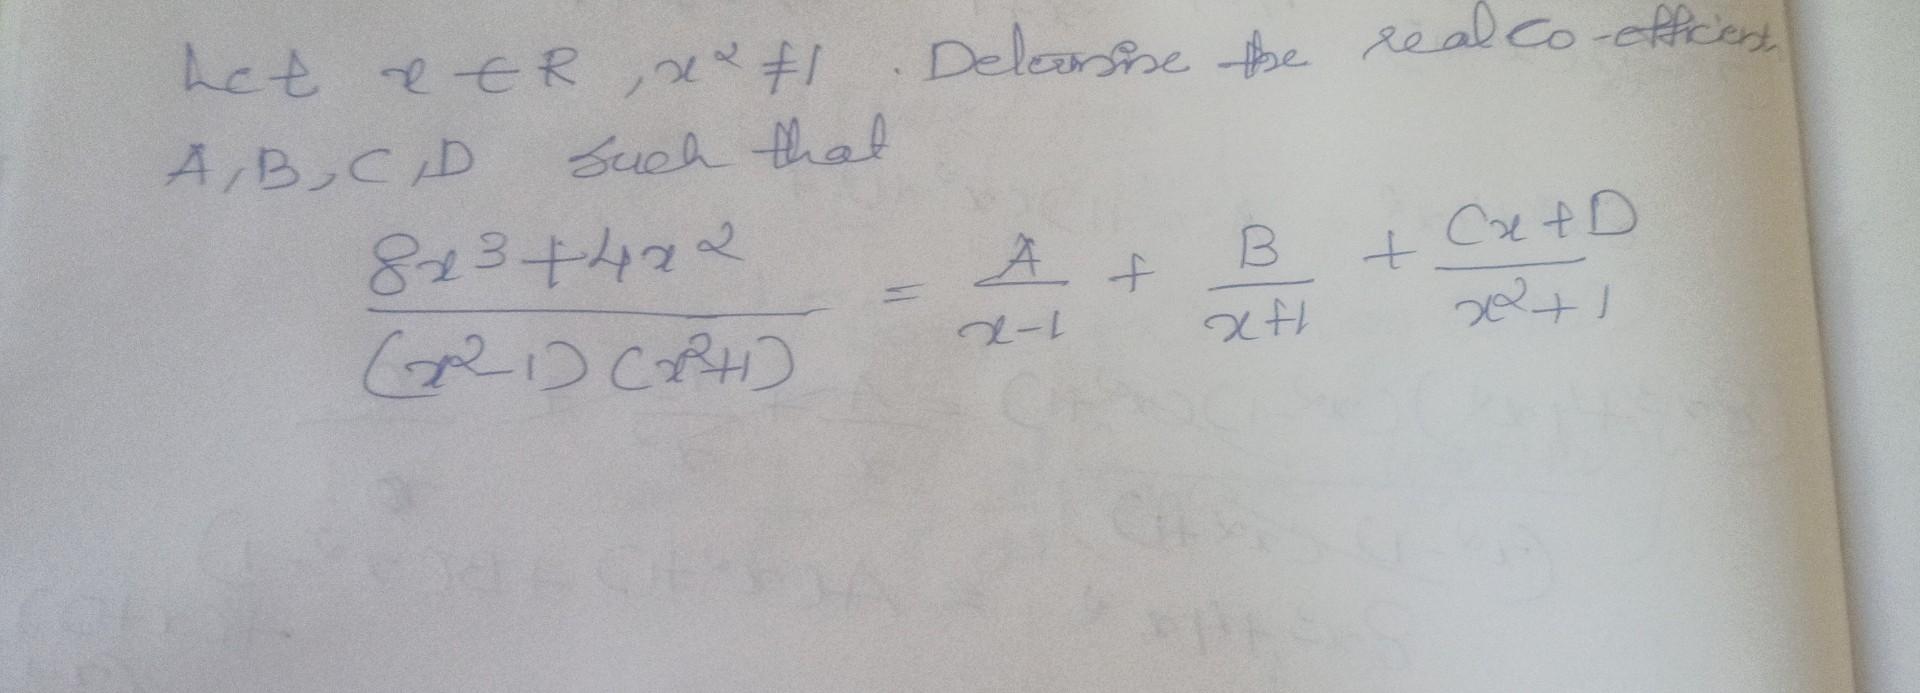 Let x ∈ R, x² ≠ 1. Determine the real co-efficient
A, B, C, D such that
8x³+4x² / (x²-1)(x²+1) = A/x-1 + B/x+1 + Cx+D/x²+1